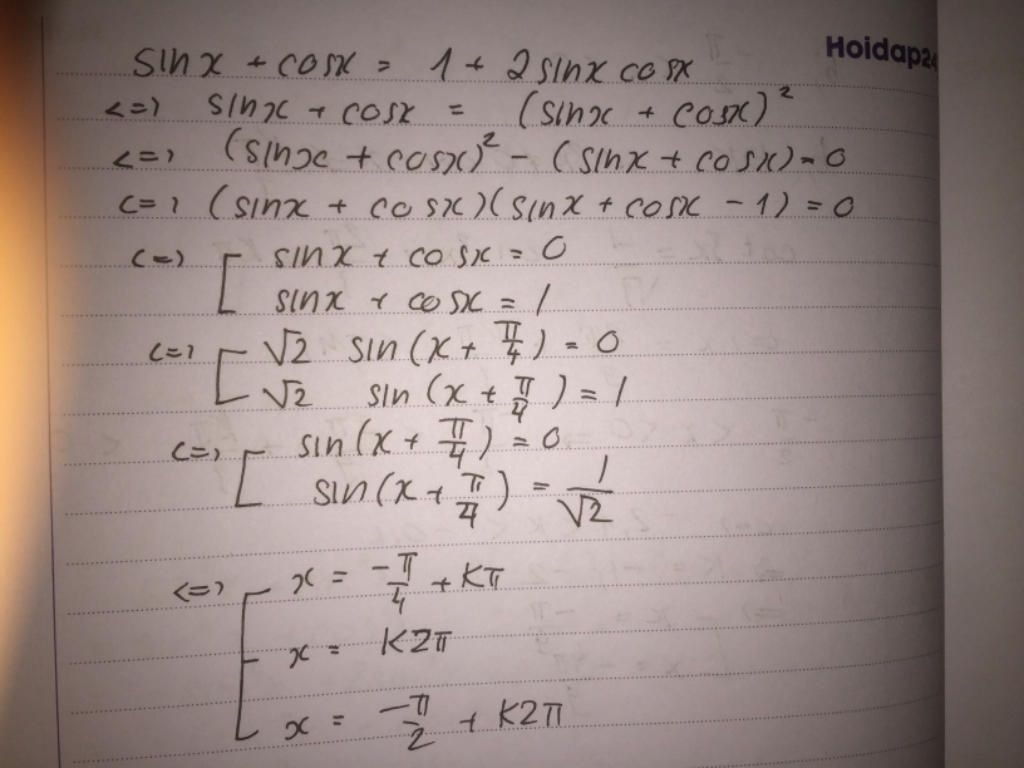 Hoidap24
sinx + cosx = 1 + 2 sinx cosx
<=> sinx + cosx = (sinx + cosx)²
<=> (sinx + cosx)² - (sinx + cosx) = 0
<=> (sinx + cosx)(sinx + cosx - 1) = 0
<=> [ sinx + cosx = 0
sinx + cosx = 1
<=> [ √2 sin(x + π/4) = 0
√2 sin(x + π/4) = 1
<=> [ sin(x + π/4) = 0
sin(x + π/4) = 1/√2
<=> [ x = -π/4 + Kπ
x = K2π
x = -π/2 + K2π